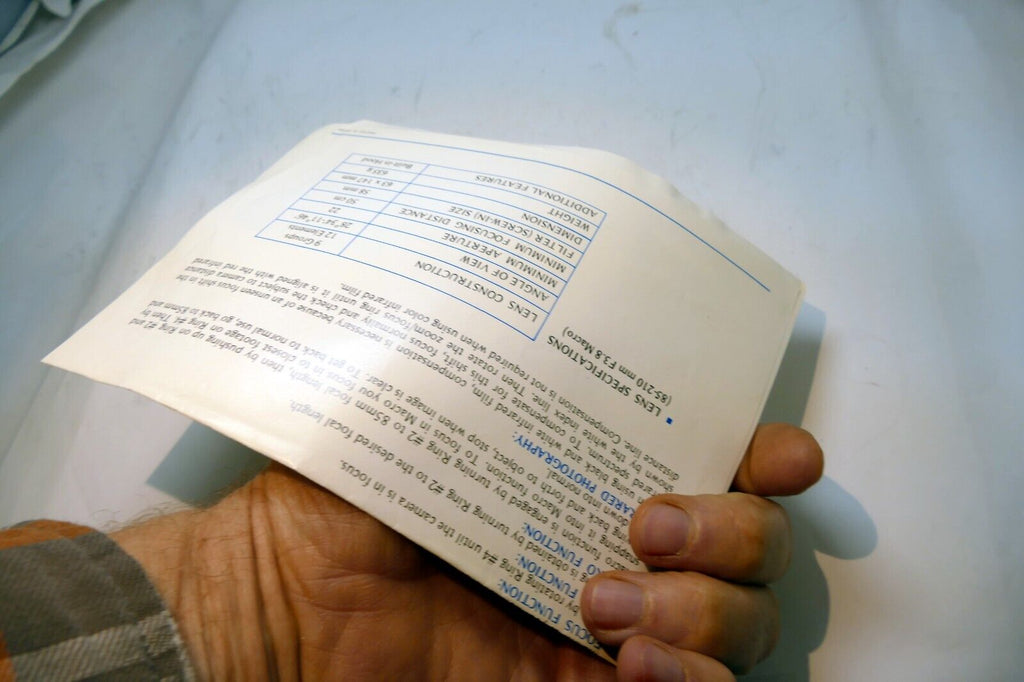 FOCUS FUNCTION:
by rotating Ring #4 until the camera is in focus.
FUNCTION:
is obtained by turning Ring #2 to the desired focal length.
FUNCTION:
function is engaged by turning Ring #2 to 85mm focal length, then by pushing up on Ring #2 and
Macro function. To focus in Macro you focus in to closest footage on Ring #4. Then by
back and forth to object, stop when image is clear. To get back to normal use, go back to 85mm and
down back into normal.
PHOTOGRAPHY:
using black and white infrared film, compensation is necessary because of an unseen focus shift in the
spectrum. To compensate for this shift, focus normally and check the subject to camera distance
shown by the white index line. Then rotate the zoom/focus ring until it is aligned with the red infrared
distance line. Compensation is not required when using color infrared film.
LENS SPECIFICATIONS
(85-210 mm F3.8 Macro)
LENS CONSTRUCTION 9 Groups 12 Elements
ANGLE OF VIEW 28°34'-11°46'
MINIMUM APERTURE 22
MINIMUM FOCUSING DISTANCE 50 cm
FILTER (SCREW-IN) SIZE 58 mm
DIMENSION 67 x 147 mm
WEIGHT 637 g
ADDITIONAL FEATURES Built-in Hood